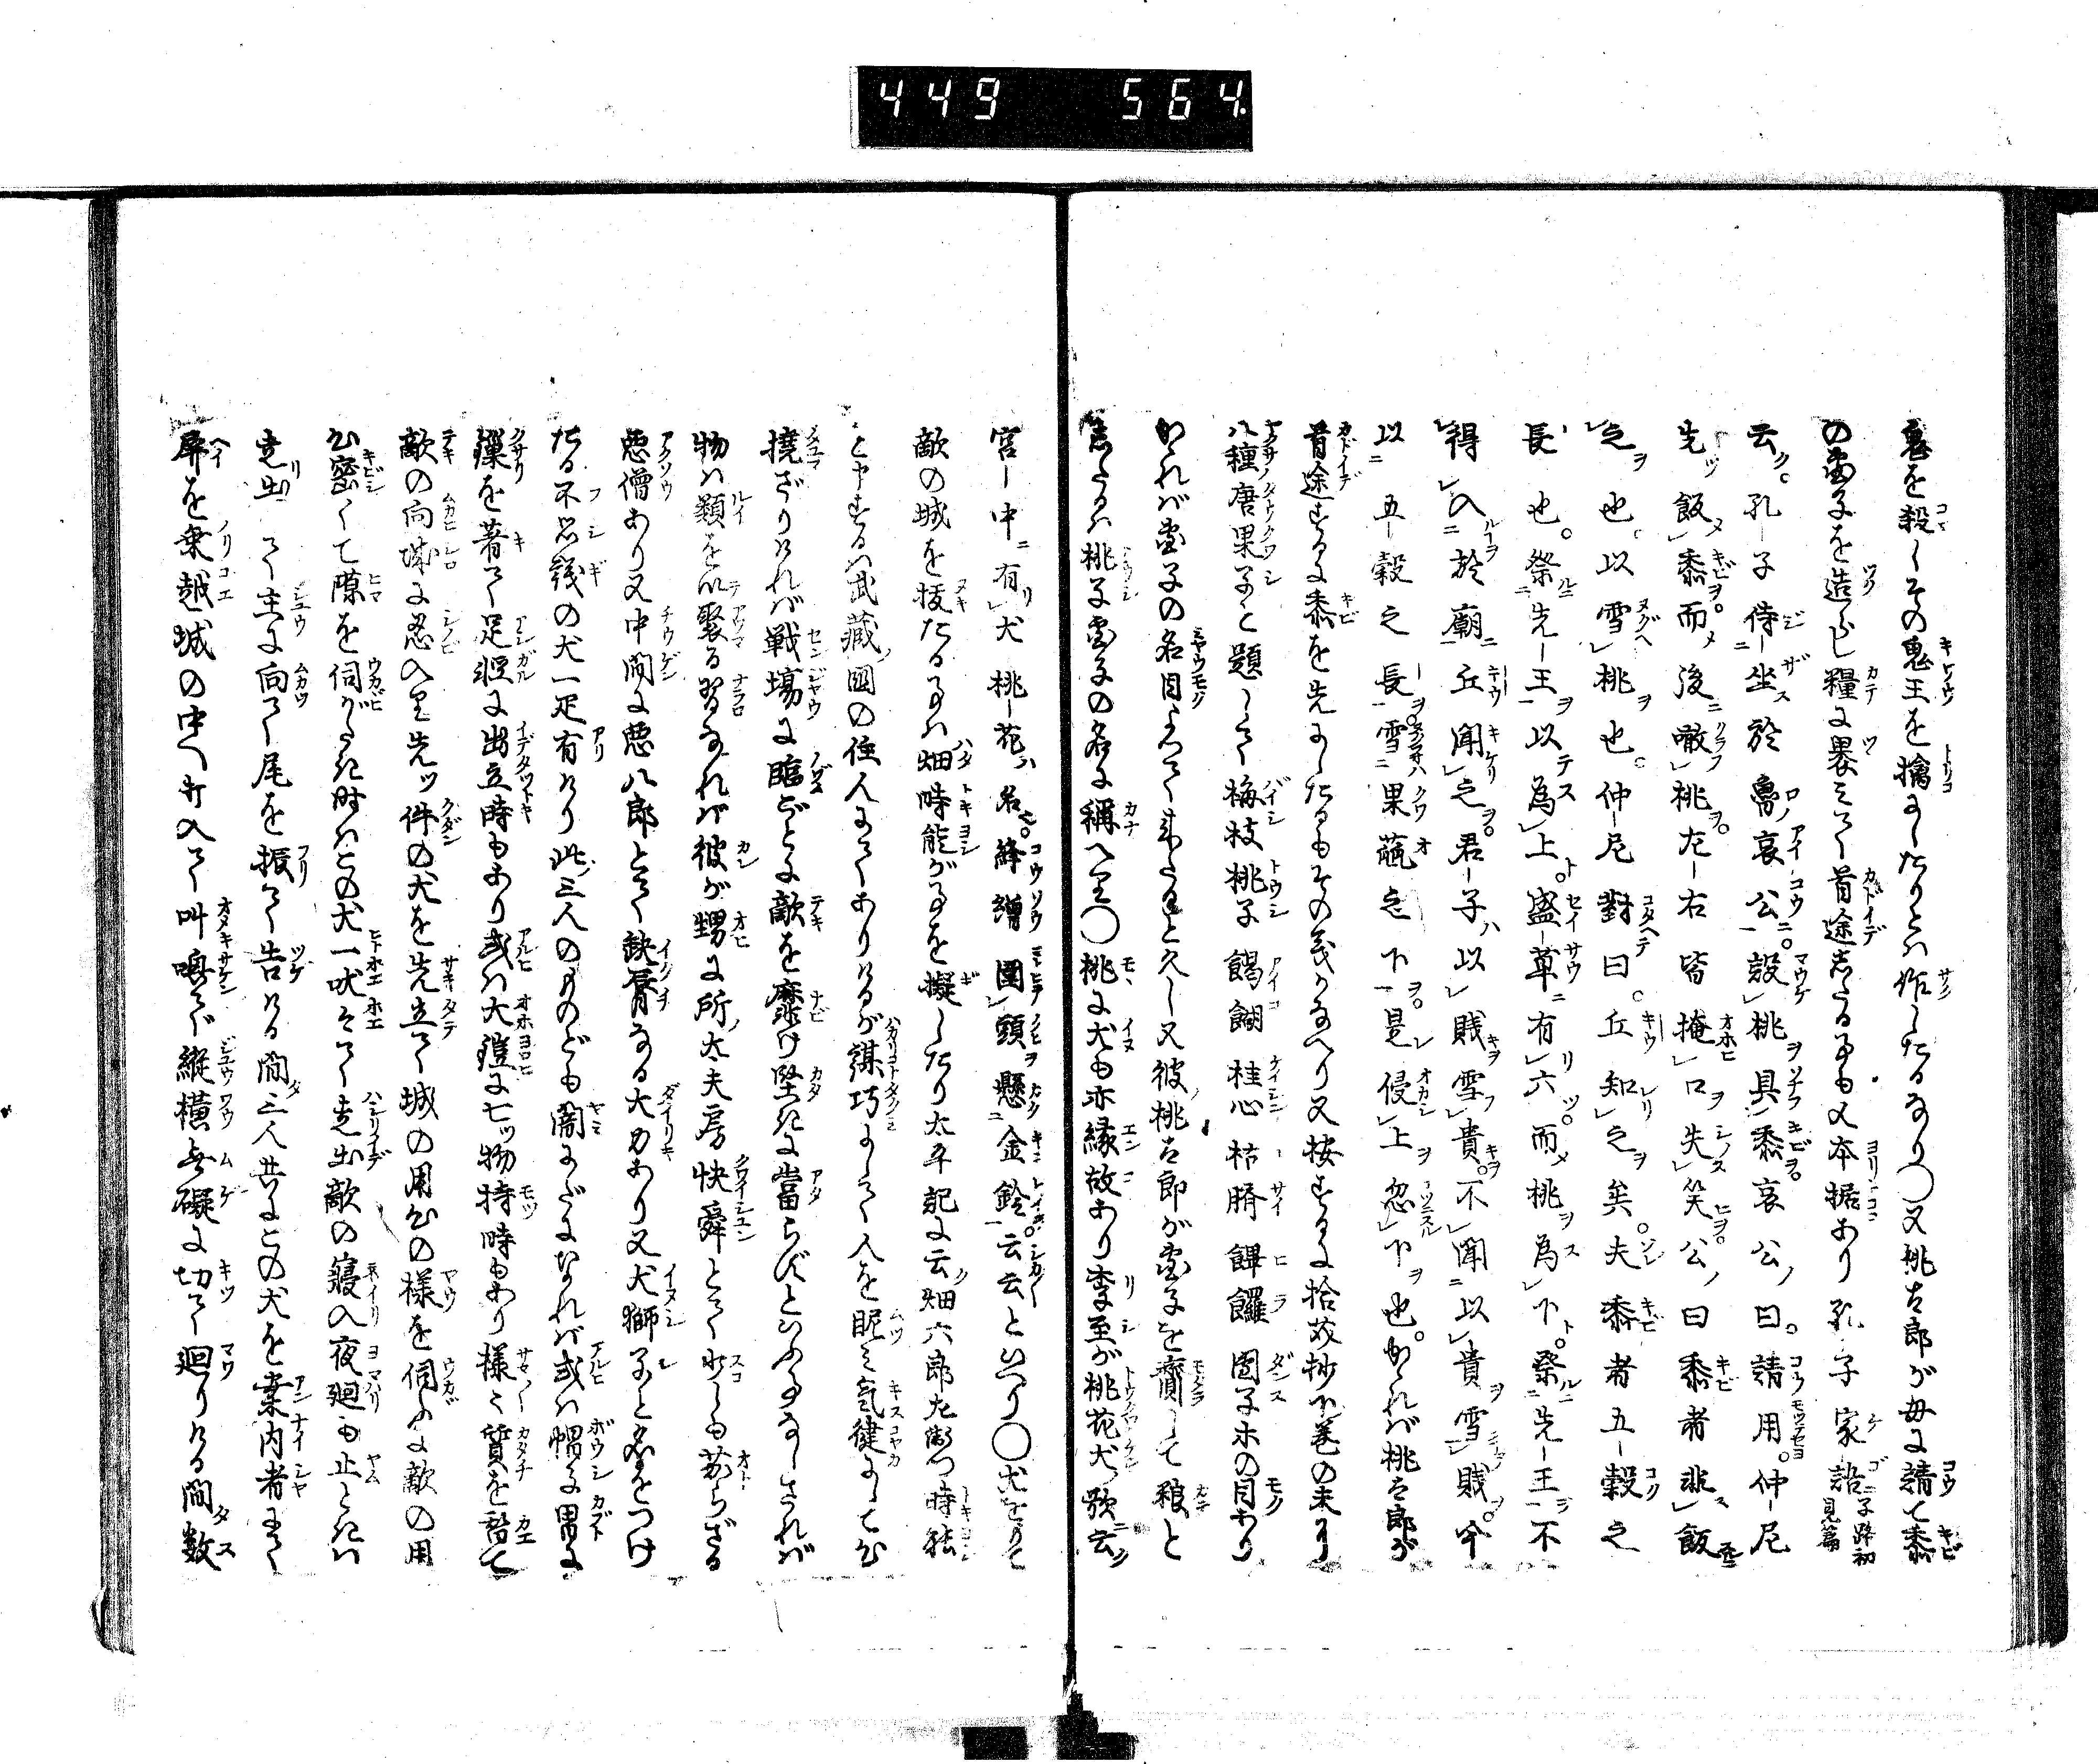 449 564
鬼を殺しその鬼王を擒にしたりとは作したるなり〇又桃太郎が母に請て黍
の團子を造らし糧に褁みて首途したる事も又本据あり孔子家語子路初見篇
云孔子侍坐於魯哀公設桃具黍哀公曰請用仲尼
先飯黍而後噉桃左右皆掩口失笑公曰黍者非飯
之也以雪桃也仲尼對曰丘知之矣夫黍者五穀之
長也祭先王以為上盛草有六而桃為下祭先王不
得入於廟丘聞之君子以賎雪貴不聞以貴雪賎今
以五穀之長雪果蓏之下是侵上忽下也かれば桃太郎が
首途するに黍を先にしたるもその義にかなへり又按するに拾芥抄下巻の末に
八種唐果子と題して梅枝桃子餲餬桂心枯臍饆饠團子ホの目あり
かれば團子の名目よつて来ること久し又彼桃太郎が團子を齎して粮と
したるは桃子團子の名に稱へり〇桃に犬も亦縁故あり李至が桃花犬歌云
宮中有犬桃花名絳繒圍頸懸金鈴云云といへり〇犬をもて
敵の城を抜たる事は畑時能が事を擬したり太平記に云畑六郎左衛門時能
と申するは武藏國の住人にてありけるが謀巧にして人を眤み氣健にして心
撓ざりければ戦場に臨むごとに敵を靡け堅きに當らずといふ事なしされば
物は類を以聚る習なれば彼が甥に所大夫房快舜とて少しも劣らざる
悪僧あり又中間に悪八郎とて鈌脣なる大力あり又犬獅子と名をつけ
たる不思議の犬一疋有けり此三人のものども闇にだになれば或は帽子冑に
鏁を著て足軽に出立時もあり或は大鎧に七ッ物持時もあり様々質を替て
敵の向城に忍入り先ッ件の犬を先立て城の用心の様を伺ふに敵の用
心密くて隙を伺がたき時はこの犬一吠ほえて走出敵の寝入夜廻も止ときは
走出て主に向て尾を振て告ける間三人共にこの犬を案内者にて
屏を乗越城の中へ打入て叫喚で縦横無礙に切て廻りける間数